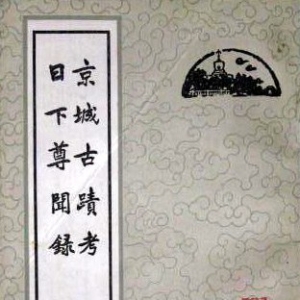 京城古蹟考
日下尊聞錄